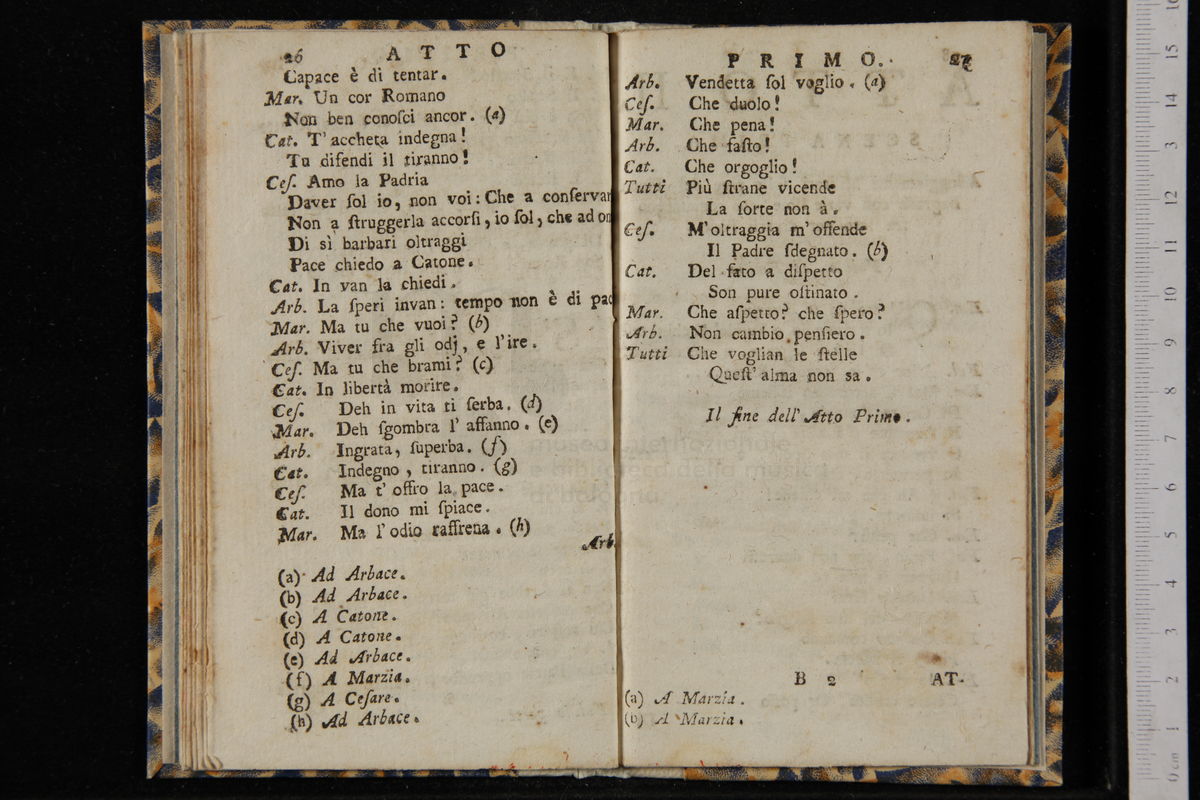 26 ATTO
Capace è di tentar.
Mar. Un cor Romano
Non ben conoſci ancor. (a)
Cat. T' accheta indegna!
Tu difendi il tiranno!
Ceſ. Amo la Padria
Daver ſol io, non voi: Che a conſervar
Non a ſtruggerla accorſi, io ſol, che ad on
Di sì barbari oltraggi
Pace chiedo a Catone.
Cat. In van la chiedi.
Arb. La ſperi invan: tempo non è di pac
Mar. Ma tu che vuoi? (b)
Arb. Viver fra gli odj, e l'ire.
Ceſ. Ma tu che brami? (c)
Cat. In libertà morire.
Ceſ. Deh in vita ti ſerba. (d)
Mar. Deh ſgombra l' affanno. (e)
Arb. Ingrata, ſuperba. (f)
Cat. Indegno, tiranno. (g)
Ceſ. Ma t' offro la pace.
Cat. Il dono mi ſpiace.
Mar. Ma l'odio raffrena. (h)
Arb.
(a) Ad Arbace.
(b) Ad Arbace.
(c) A Catone.
(d) A Catone.
(e) Ad Arbace.
(f) A Marzia.
(g) A Ceſare.
(h) Ad Arbace.
PRIMO. 27
Arb. Vendetta ſol voglio. (a)
Ceſ. Che duolo!
Mar. Che pena!
Arb. Che faſto!
Cat. Che orgoglio!
Tutti Più ſtrane vicende
La ſorte non à.
Ceſ. M'oltraggia m'offende
Il Padre ſdegnato. (b)
Cat. Del fato a diſpetto
Son pure oſtinato.
Mar. Che aſpetto? che ſpero?
Arb. Non cambio penſiero.
Tutti Che voglian le ſtelle
Queſt' alma non sa.
Il fine dell' Atto Primo.
B 2 AT-
(a) A Marzia.
(b) A Marzia.
museo internazionale
e biblioteca della musica
di bologna